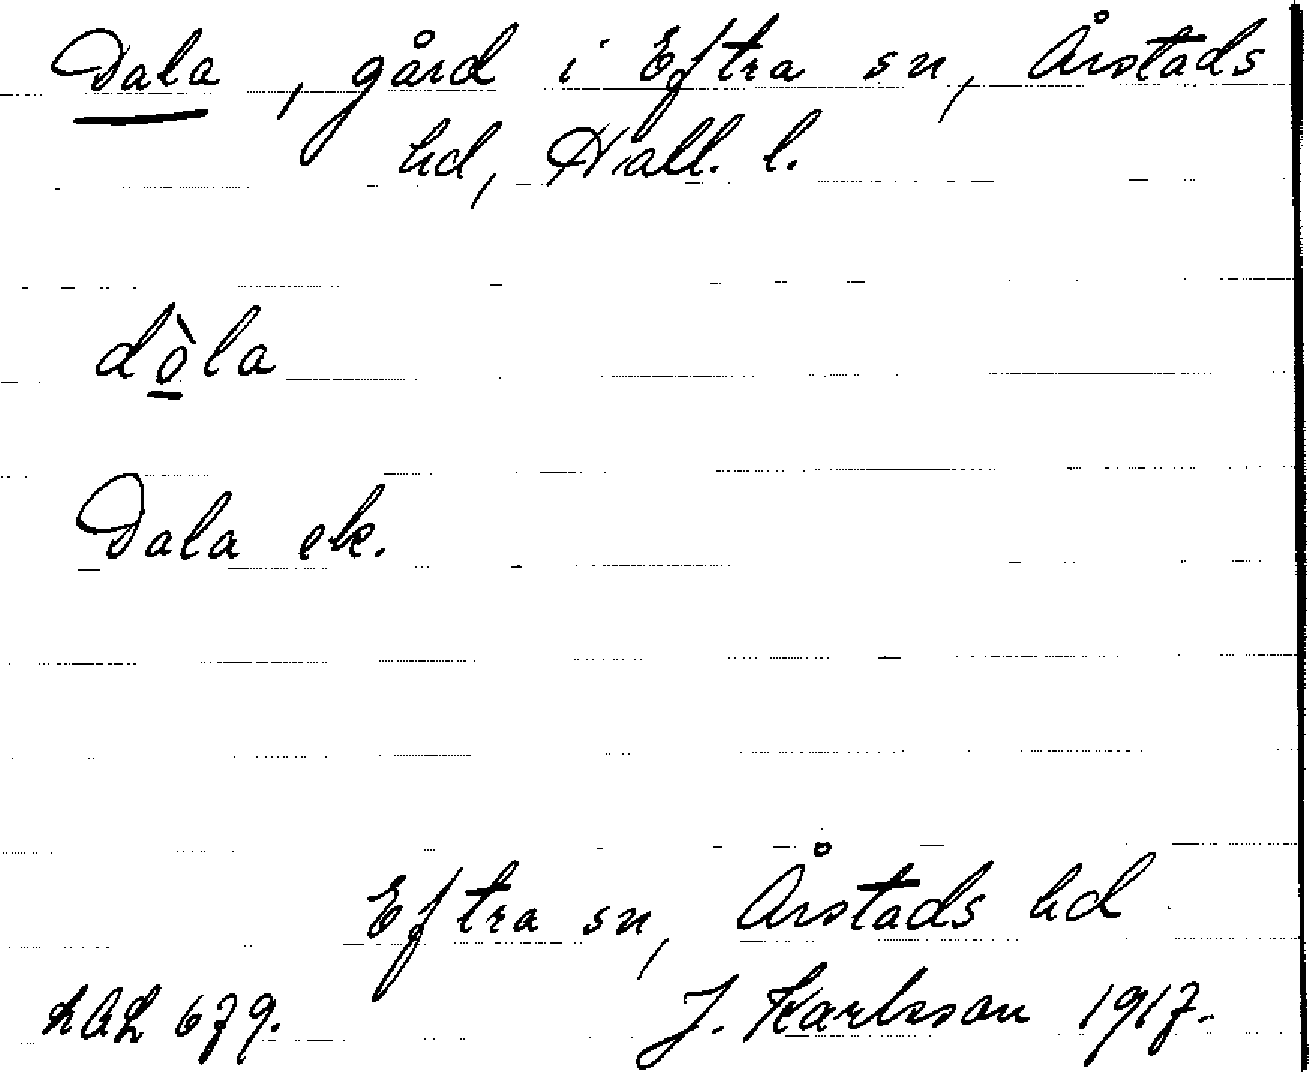 Dala, gård i Eftra sn, Årstads
hd, Hall. l.
dòla
Dala ek.
Eftra sn, Årstads hd
LAL 679. J. Karlsson 1917.